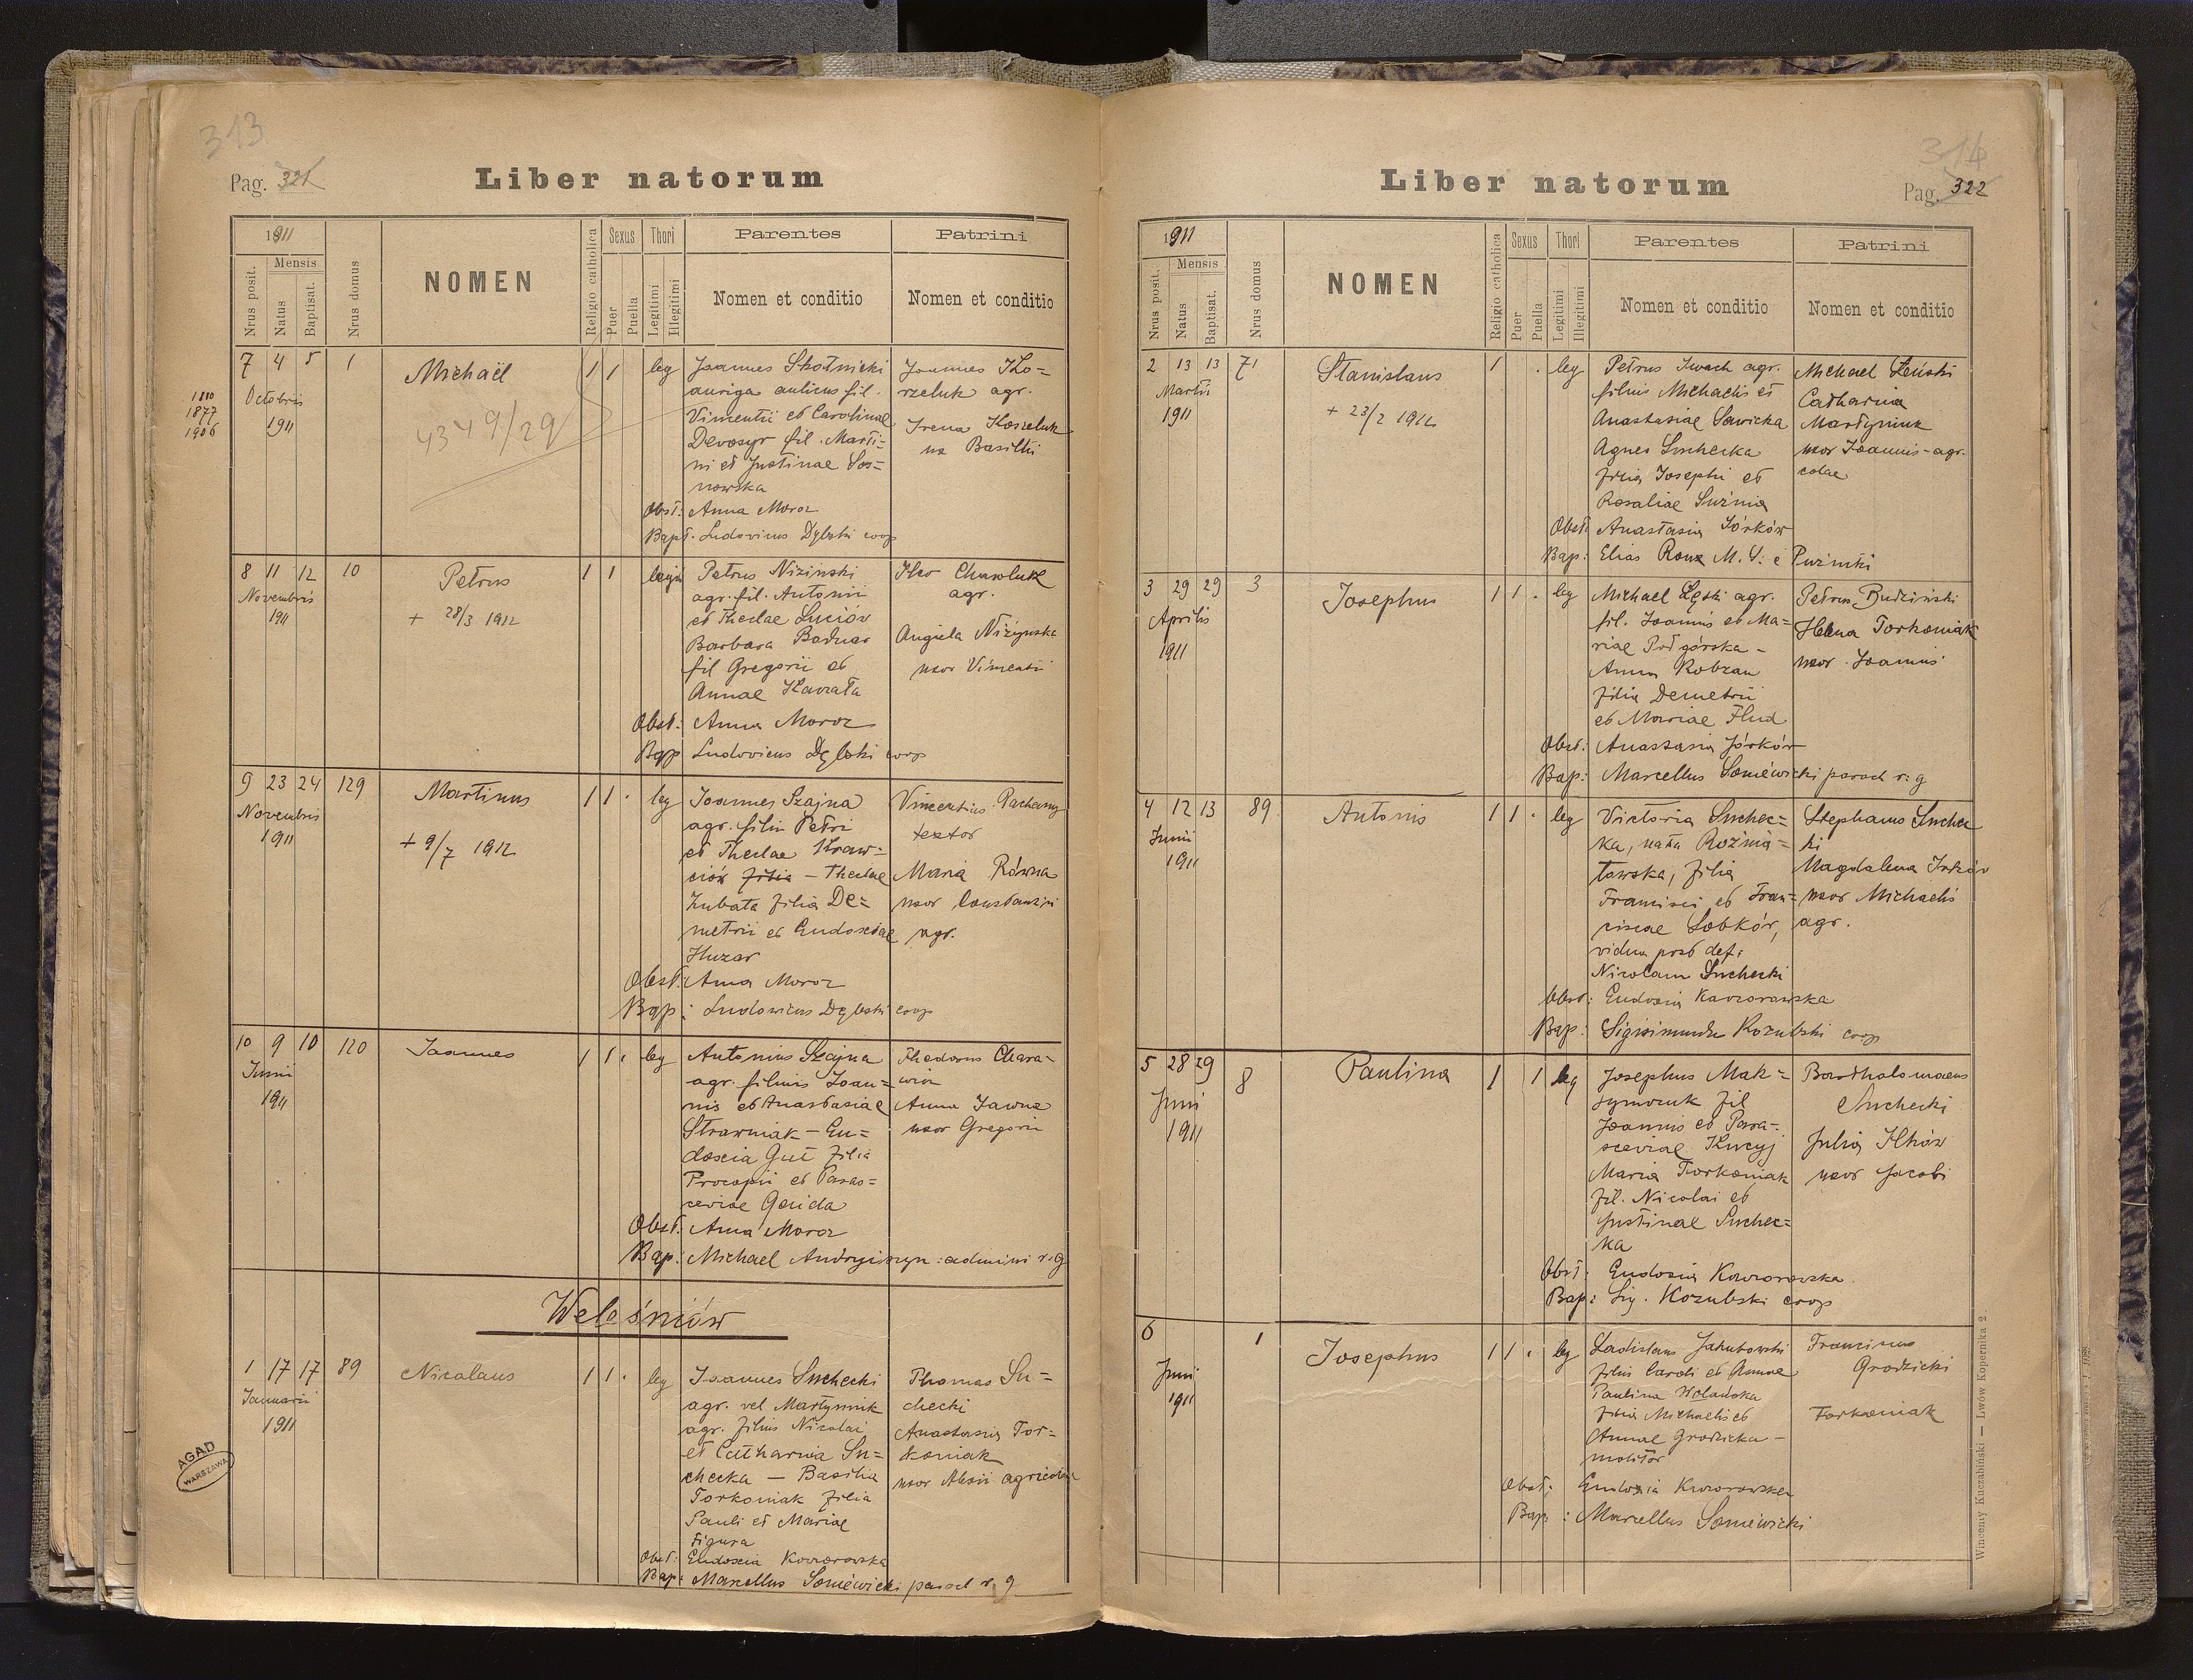 313
Pag. 321
Liber natorum
1911
Nrus posit.
Mensis
Natus
Baptisat.
Nrus domus
NOMEN
Religio catholica
Sexus
Puer
Puella
Thori
Legitimi
Illegitimi
Parentes
Nomen et conditio
Patrini
Nomen et conditio
7 4 5 1
Octobris
1911
1877
1906
Michaël
4349/29
1 1 leg
Joannes Skotnicki
auriga aulicus fil.
Vincentii et Carolinae
Devosyr fil. Marti=
ni et Justinae Sos=
nowska
Obst: Anna Moroz
Bapt. Ludovicus Dębski coop
Joannes Ko=
rzeluk agr.
Irena
Basilii
8 11 12 10
Novembris
1911
Petrus
+ 28/3 1912
1 1
Petrus Nizinski
agr. fil. Antonii
et Theclae Luciów
Barbara Bodnar
fil Gregorii et
Annae
Obst: Anna Moroz
Bap Ludovicus Dębski coop
agr.
Angiela Niżynska
uxor Vincentii
9 23 24 129
Novembris
1911
Martinus
+ 9/7 1912
1 1 . leg
Joannes Szajna
agr. filius Petri
et Theclae Kraw=
ciów filia - Theclae
Zubata filia De=
metrii et Eudosciae
Huzar
Obst: Anna Moroz
Bap: Ludowicus Dębski coop
Vincentius
textor
Maria Równa
uxor Constantini
agr.
10 9 10 120
Junii
1911
Joannes
1 1 . leg
Antonius Szajna
agr. filius Joan=
nis et Anastasiae
Strawniak - Eu=
doscia Gut filia
Procopii et Paras=
ceviae
Obst: Anna Moroz
Bap: Michael Andryiszyn : admini r. g
Theodorus Chara=
Anna
uxor Gregorii
Weleśniów
1 17 17 89
Januarii
1911
Nicolaus
1 1 . leg
Joannes Suchecki
agr. vel Martyniuk
agr. filius Nicolai
et Catharina Su=
checka - Basilia
Torkoniak filia
Pauli et Mariae
Figura
Obst: Eudoscia Kaczorowska
Bap: Marcellus Soniewicki paroch r. g
Thomas Su=
checki
Anastasia Tor=
koniak
uxor Alexii agricolae
AGAD
WARSZAWA
314
Pag. 322
Liber natorum
1911
Nrus posit.
Mensis
Natus
Baptisat.
Nrus domus
NOMEN
Religio catholica
Sexus
Puer
Puella
Thori
Legitimi
Illegitimi
Parentes
Nomen et conditio
Patrini
Nomen et conditio
2 13 13 71
Martii
1911
Stanislaus
+ 23/2 1912
1 . leg
Petrus Iwach agr.
filius Michaelis et
Anastasiae Sawicka
Agnes Suchecka
filia Josephi et
Rosaliae
Obst: Anastasia Jórków
Bap: Elias
Michael
Catharina
Martyniuk
uxor Joannis - agri
colae
3 29 29 3
Aprilis
1911
Josephus
1 1 . leg
Michael Łęski agr.
fil. Joannis et Ma=
riae Podgórska -
Anna Kobzan
filia Demetrii
et Mariae Hud
Obst: Anastasia Jórków
Bap: Marcellus Soniewicki paroch r: g
Petrus Budziński
Helena Torkoniak
uxor Joannis
4 12 13 89
Junii
1911
Antonis
1 1 . leg
Victoria Suchec=
ka, nata Roźnia=
towska, filia
Francisci et Fran=
ciscae Sobków,
vidua post def:
Nicolaum Suchecki
Obst: Eudoxia Kaczorowska
Bap: Sigisimundus Kozubski coop
Stephanus Suchec
ki
Magdalena
uxor Michaelis
agr.
5 28 29 8
Juni
1911
Paulina
1 1 leg
Josephus Mak=
symczuk fil
Joannis et Para=
sceviae Kucyj
Maria Torkoniak
fil. Nicolai et
Justinae Suchec=
ka
Obst: Eudosia Kaczorowska
Bap: Sig. Kozubski coop
Bartholomaeus
Suchecki
Julia Ilków
uxor Jacobi
6 1
Juni
1911
Josephus
1 1 . leg
Ladislaus Jakubowski
filius Caroli et Annae
Paulina Wolańska
filia Michaelis et
Annae Grodzicka -
molitor
Obst: Eudoxia Kaczorowska
Bap: Marcellus Soniewicki
Franciscus
Grodzicki
Torkoniak
Wincenty Kuczabiński — Lwów Kopernika 2.